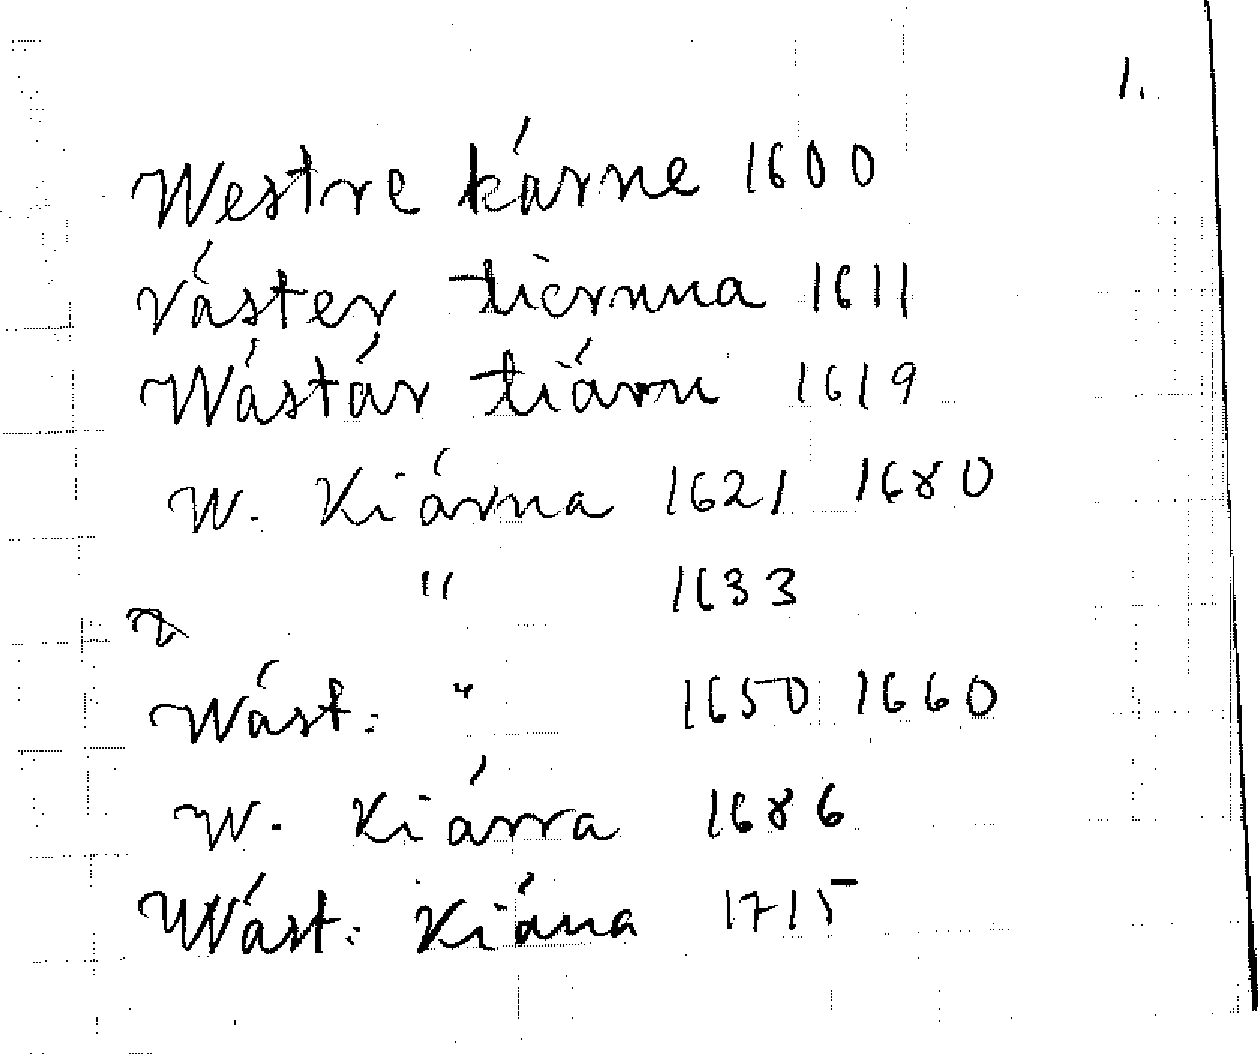 1.
Westre kárne 1600
Váster tiernna 1611
Wástár tiárn 1619
W. Kiárna 1621 1680
" 1633
Wást: " 1650 1660
W. Kiárra 1686
Wást: Kiána 1715